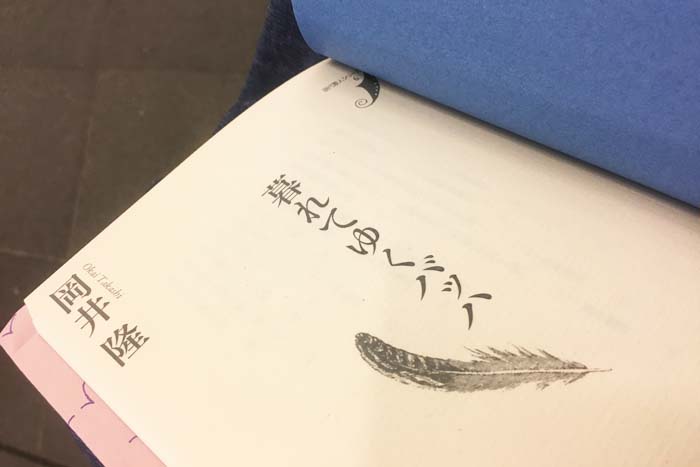 暮れてゆくバッハ
Okai Takashi
岡井隆